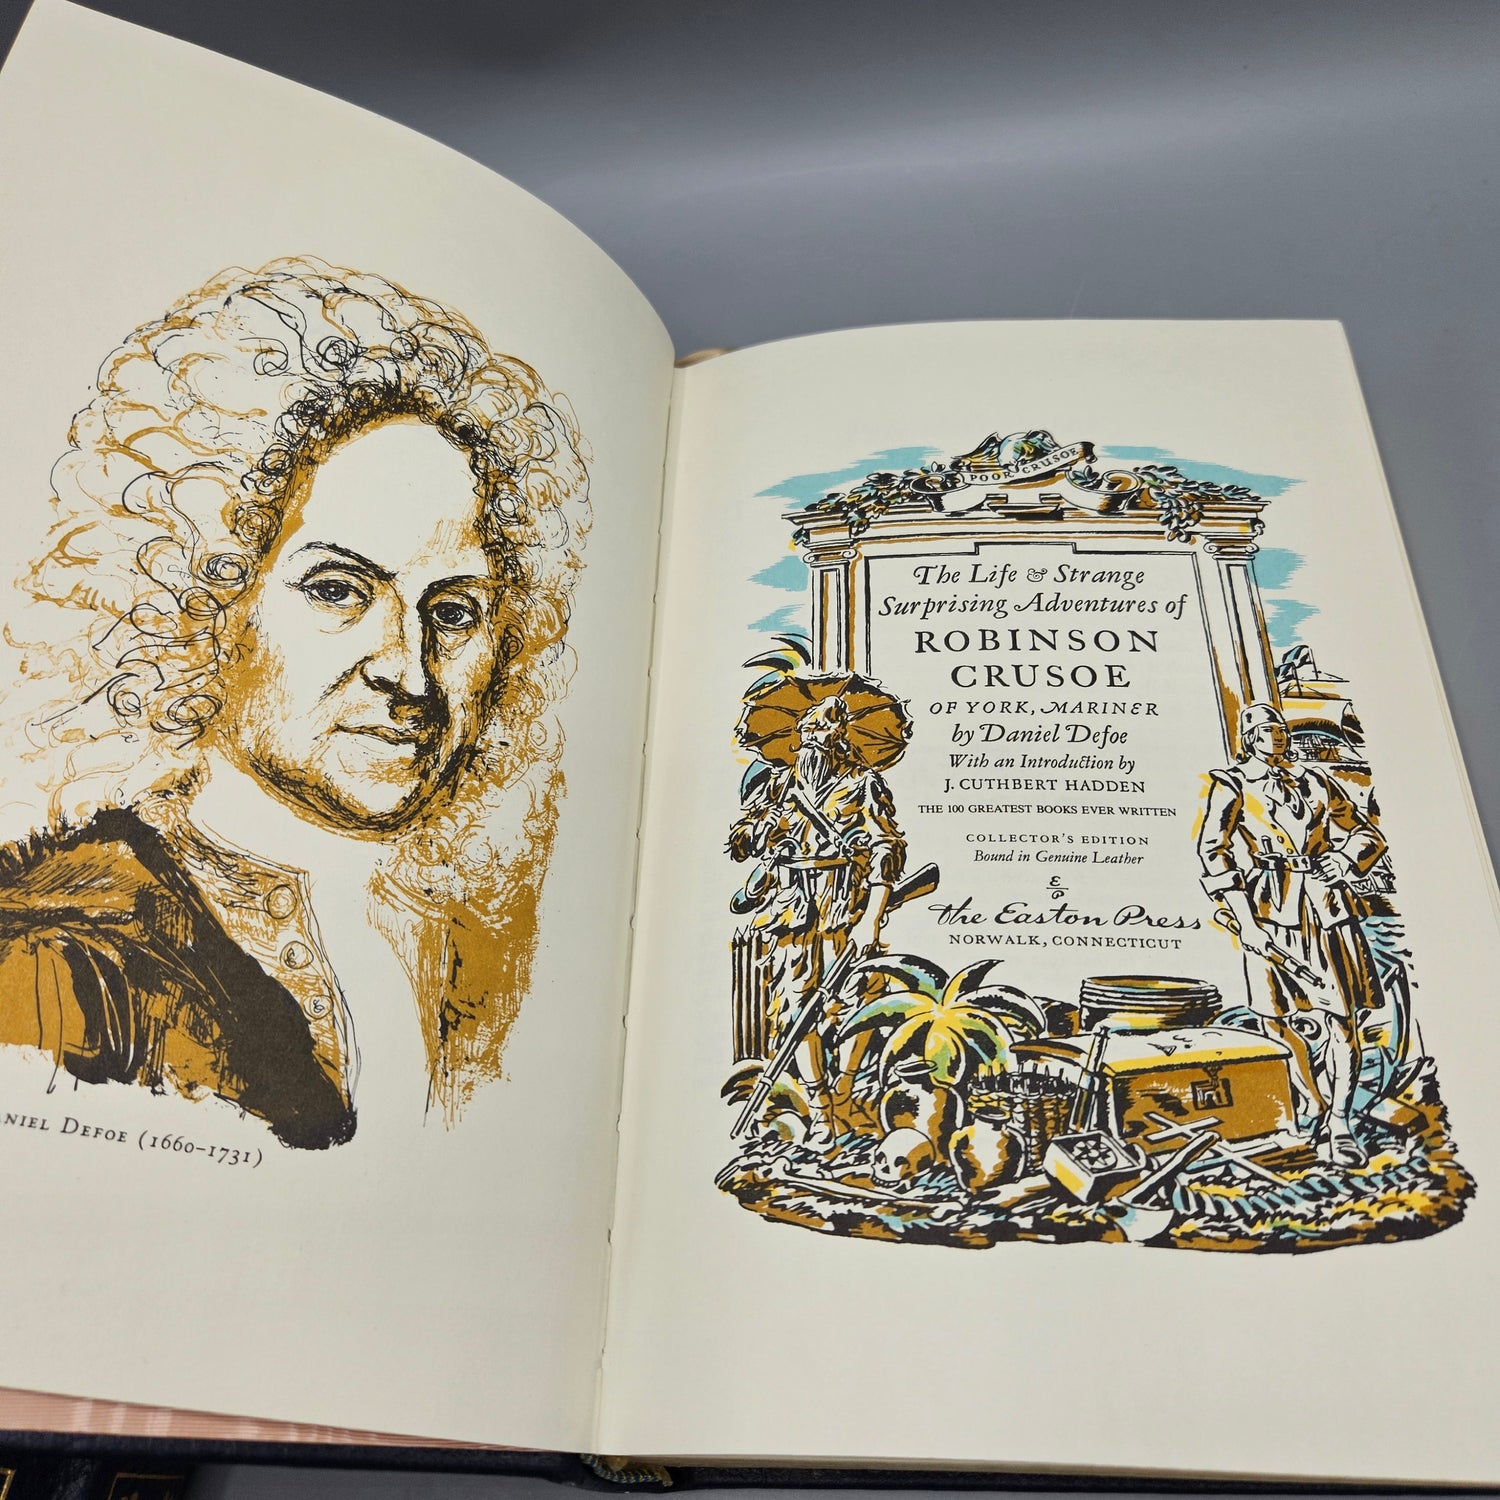 ANIEL DEFOE (1660–1731)
POOR CRUSOE
The Life & Strange
Surprising Adventures of
ROBINSON
CRUSOE
OF YORK, MARINER
by Daniel Defoe
With an Introduction by
J. CUTHBERT HADDEN
THE 100 GREATEST BOOKS EVER WRITTEN
COLLECTOR'S EDITION
Bound in Genuine Leather
E
P
The Easton Press
NORWALK, CONNECTICUT